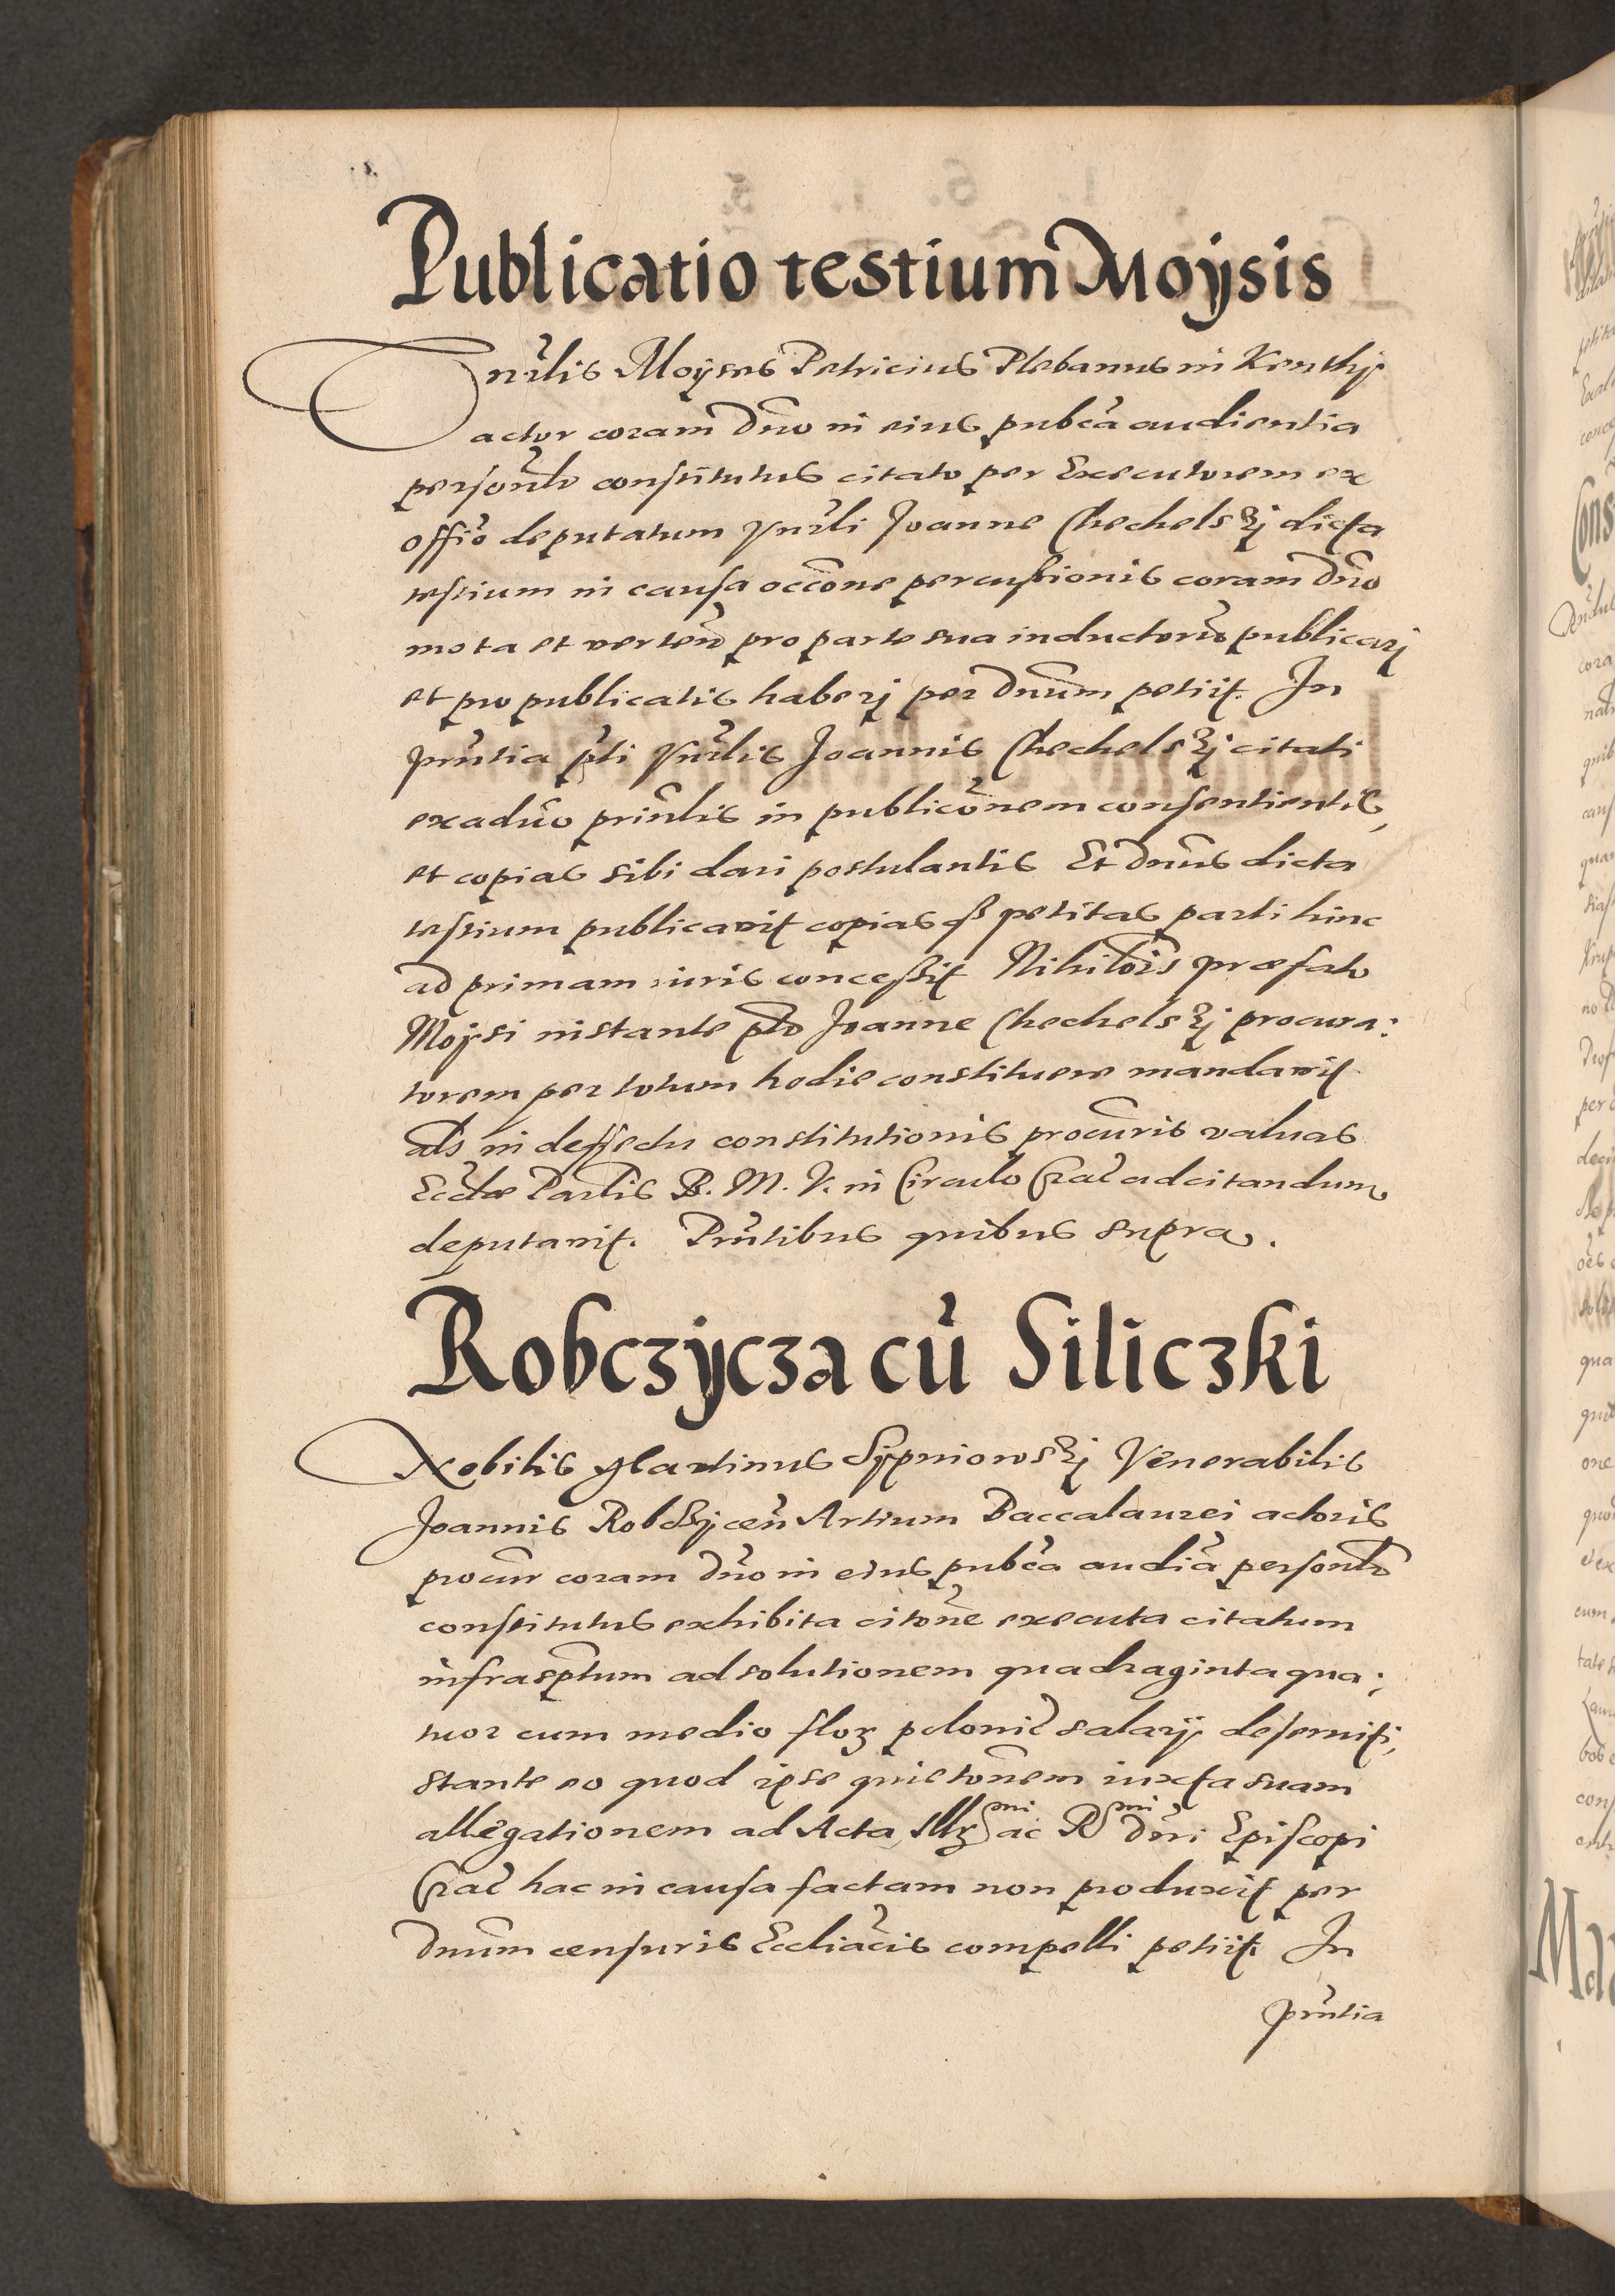 Publicatio testium Moysis
Vnrlis Moyses Petricius Plebanus in Kenthy
actor coram Dno in eius pubca audientia
personlr constitutus citato per Executorem ex
offio deputatum Vnrli Joanne Chechelski dicta
testium in causa occone percussionis coram Dno
mota et verten pro parte sua inductorum publicarj
et pro publicatis haberj per Dnum petijt. In
pnrtia pti Vnrlis Joannis Chechelskj citati
exaduo prinlis in publiconem consentientis,
et copias sibi dari postulantis Et Dnus dicta
testium publicavit copias qz petitas parti hinc
ad primam iuris concessit Nihilois præfato
Moysi instante pto Joanne Chechelskj procura:
torem per totum hodie constituere mandavit
als in deffectu constitutionis procuris valuas
Eccliæ Partis B. M. V. in Circulo Crac ad citandum
deputavit. Pntibus quibus supra.
Robczycza cu Siliczki
Nobilis Martinus Sypniowskj Venerabilis
Joannis Robczycen Artium Baccalaurei actoris
procur coram Dno in eius pubca audia personlr
constitutus exhibita citone executa citatum
infrasptum ad solutionem quadraginta qua:
tuor cum medio flor polonic salarij deseruiti,
stante eo quod ipse quietonem iuxta suam
allegationem ad Acta Illrmi ac Rmi Dni Episcopi
Crac hac in causa factam non produxit per
Dnum censuris Eccliacis compelli petijt In
pnrtia